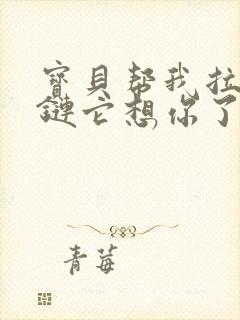 寳貝帮我拉
鏈它想你了
青莓